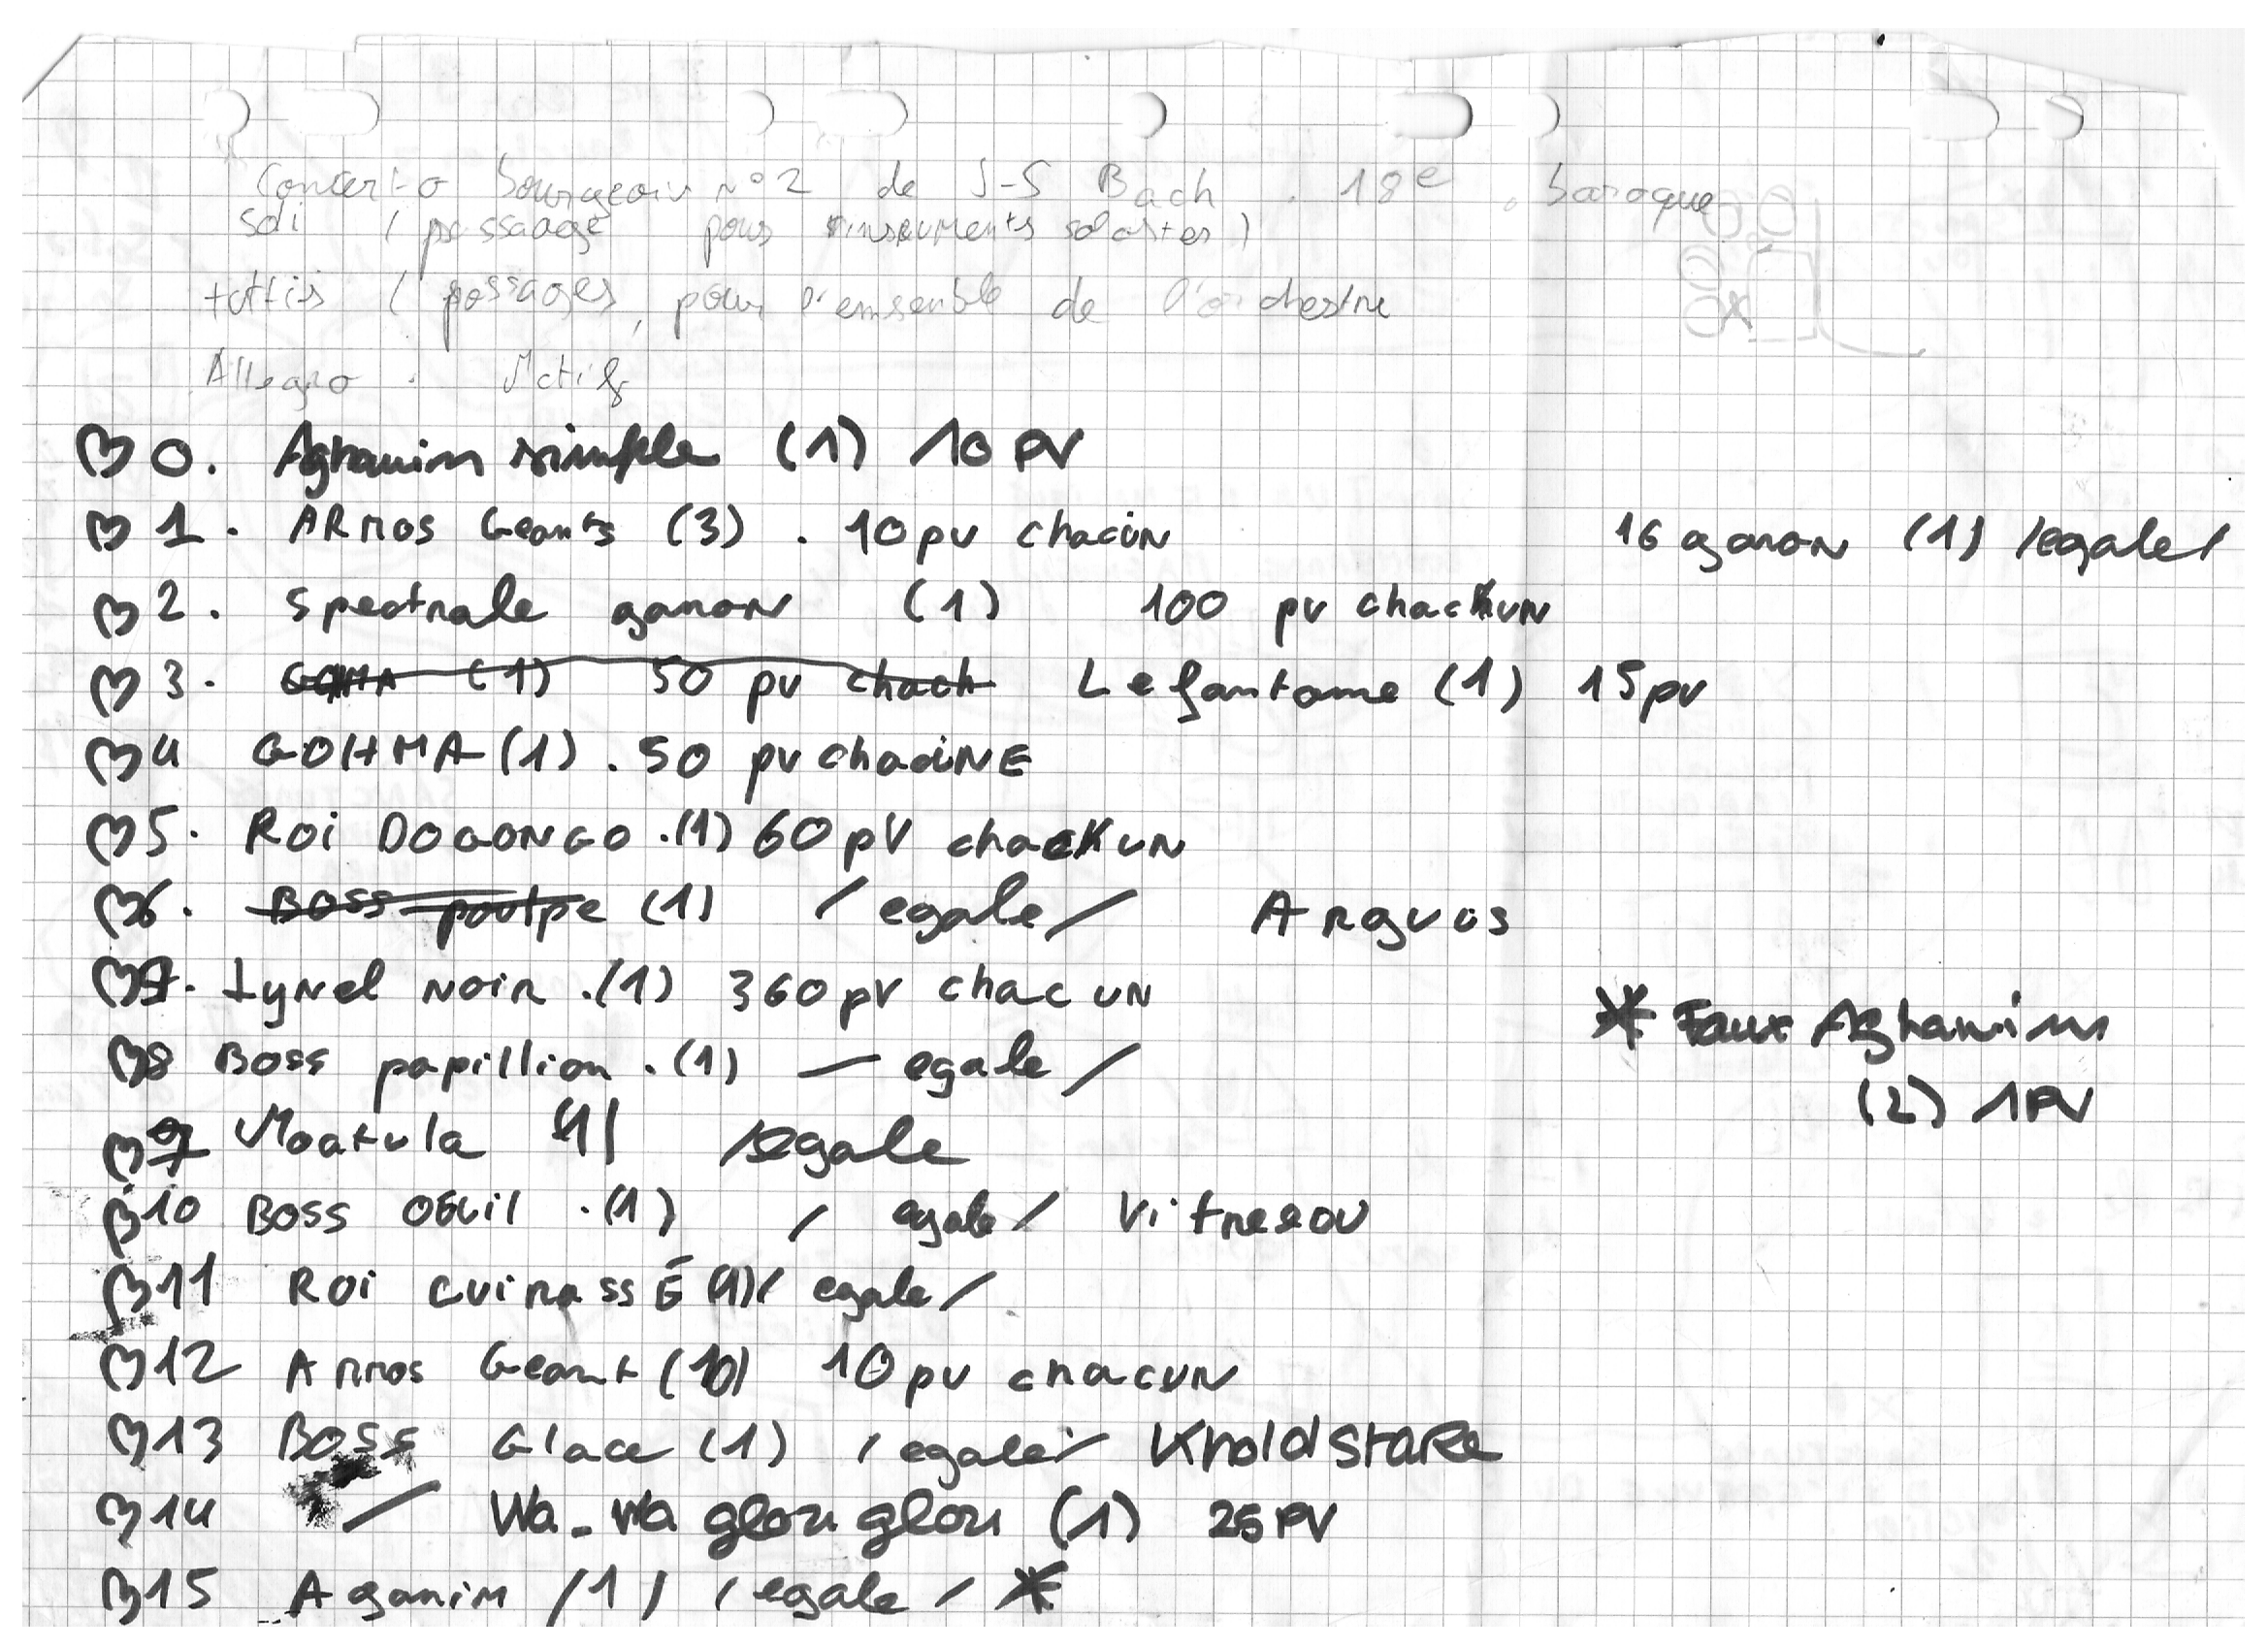 Concerto bourgeois n°2 de J-S Bach . 18e . baroque
soli (passaage pour instruments solostes)
tuttis (passages, pour l'emsenble de l'orchestre
Allegro . Motif
0. Aghanim simple (1) 10 PV
1. ARMOS Geants (3) . 10 pv chacun
16 ganon (1) /egale/
2. Spectrale ganon (1) 100 pv chackun
3. GOHMA (1) 50 pv chach Le fantome (1) 15 pv
4 GOHMA (1) . 50 pv chacuNE
5. ROi DOGONGO .(1) 60 pV chacKUN
6. BOSS poulpe (1) / egale / Arguos
7. LyNel Noir .(1) 360 pv chacUN
* Faux Aghanim
8 Boss papillion . (1) — egale /
(2) 1PV
9 Moatula (1) /egale
10 BOSS OEUil .(1) / egale / Vitreeou
11 Roi cuirassÉ (1) / egale /
12 Armos Geant (10) 10 pv chacun
13 Boss Glace (1) / egale / KholdstaRe
14 / Wa-Wa glou glou (1) 25 PV
15 Aganim /1/ / egale / *